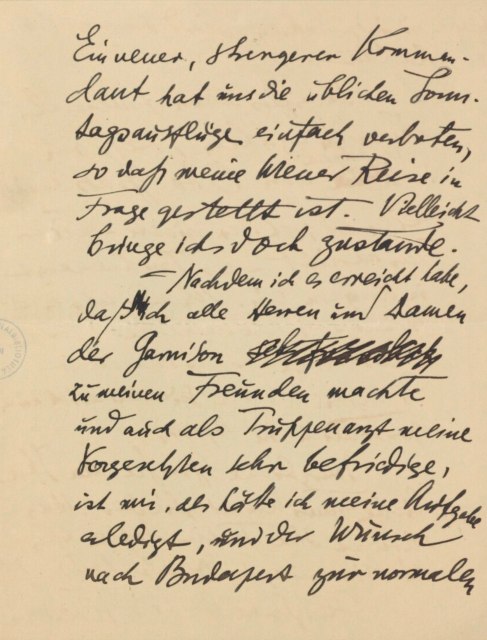 Ein neuer, strengerer Komman-
dant hat uns die üblichen Sonn-
tagsausflüge einfach verboten,
so daß meine Wiener Reise in
Frage gestellt ist. Vielleicht
bringe ichs doch zustande.
— Nachdem ich es erreicht habe,
daß ich alle Herren und Damen
der Garnison
zu meinen Freunden machte
und auch als Truppenarzt meine
Vorgesetzten sehr befriedige,
ist mir, als hätte ich meine Aufgabe
erledigt, und der Wunsch
nach Budapest zur normalen